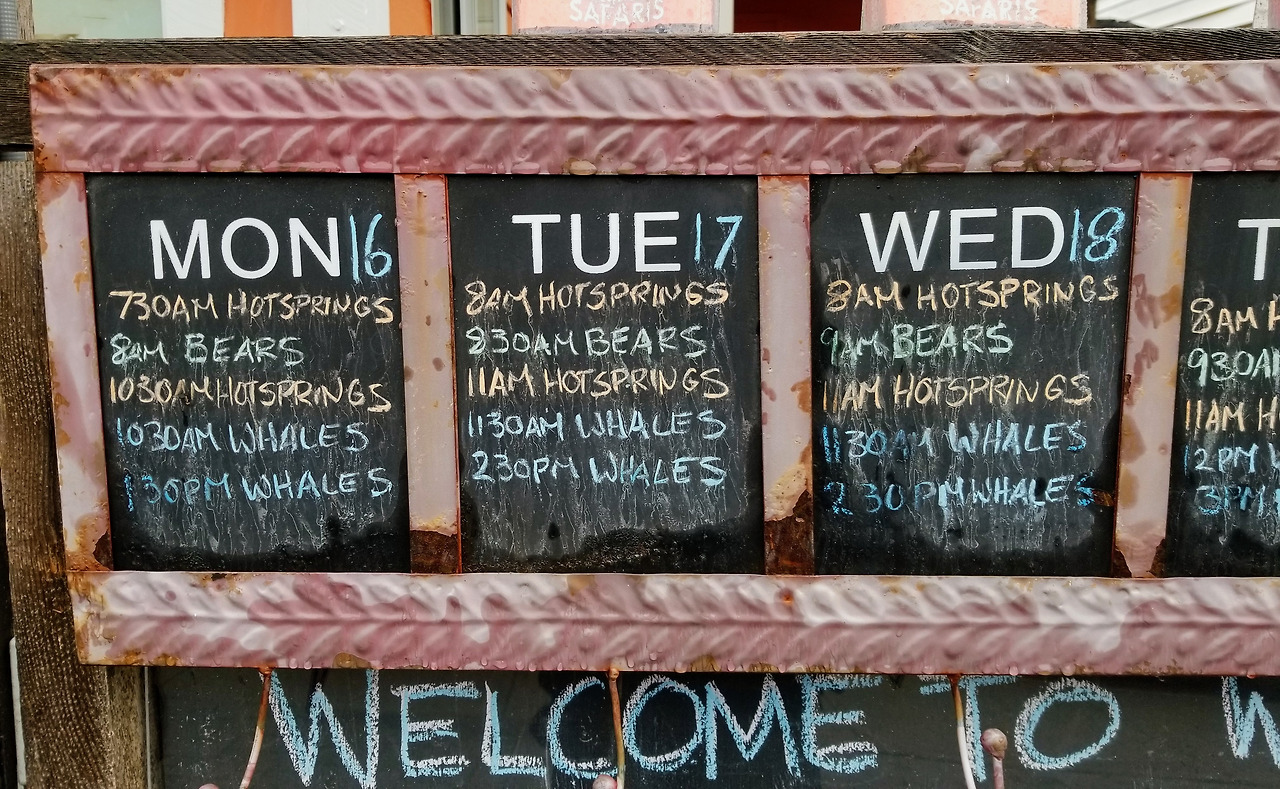 SAFARIS
SAFARIS
MON 16
730AM HOTSPRINGS
8AM BEARS
1030AM HOTSPRINGS
1030AM WHALES
130PM WHALES
TUE 17
8AM HOTSPRINGS
830AM BEARS
11AM HOTSPRINGS
1130AM WHALES
230PM WHALES
WED 18
8AM HOTSPRINGS
9AM BEARS
11AM HOTSPRINGS
1130AM WHALES
230PM WHALES
T
8AM H
930A
11AM H
12PM W
3PM
WELCOME TO W